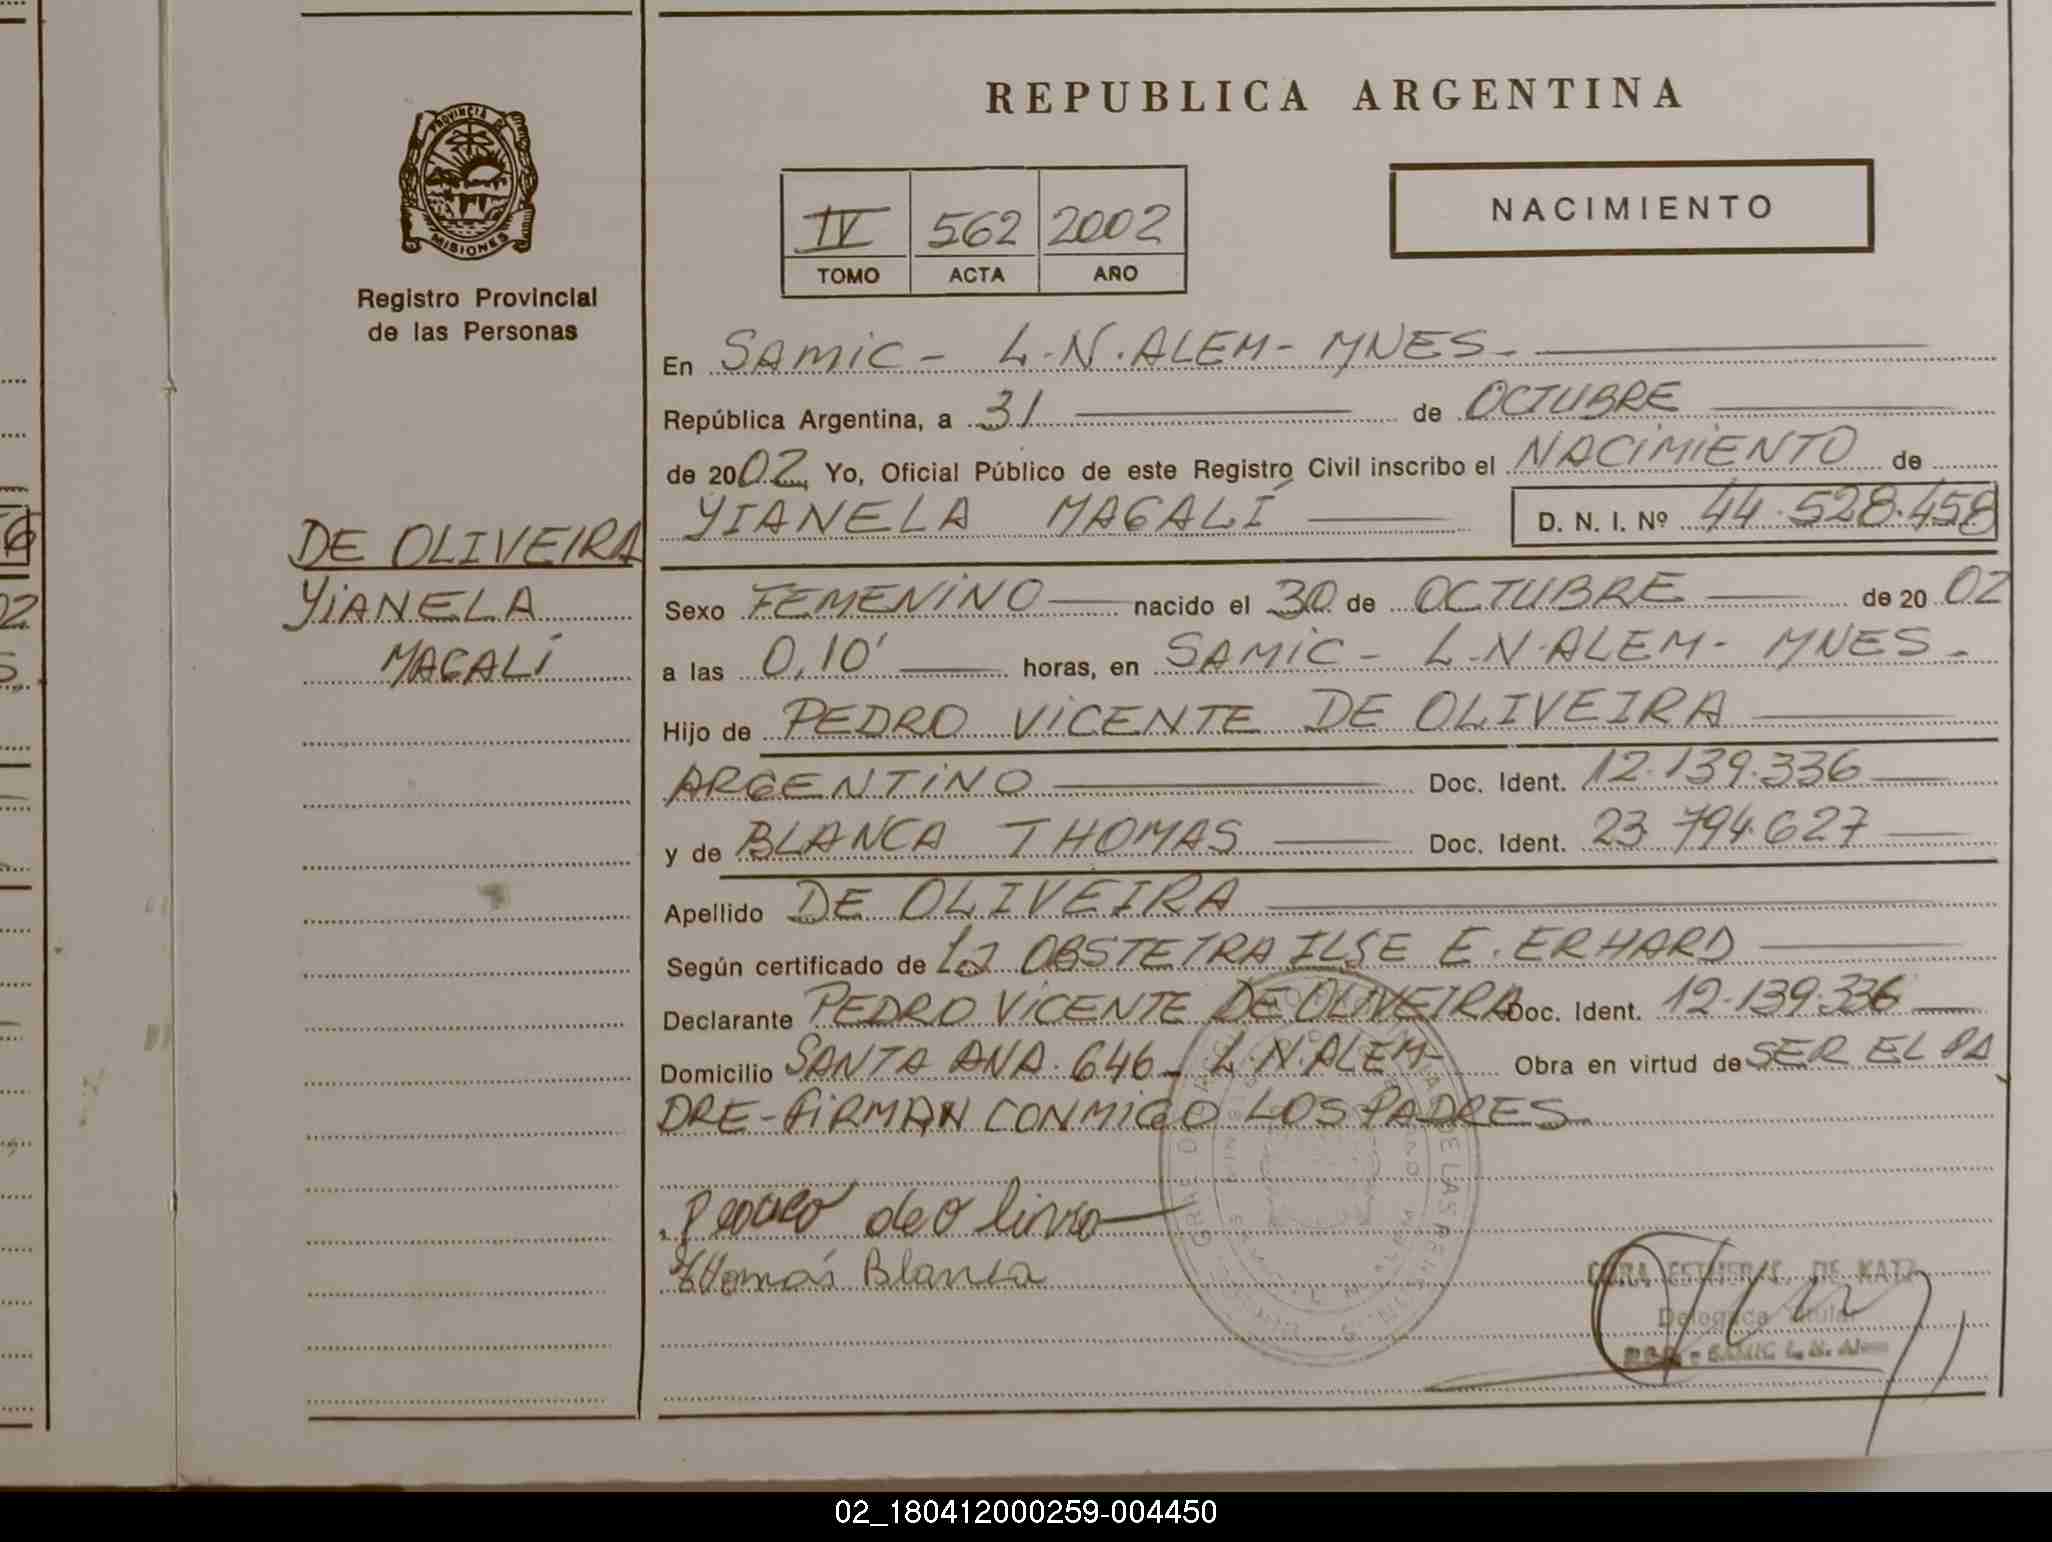 REPUBLICA ARGENTINA
PROVINCIA DE
MISIONES
Registro Provincial
de las Personas
IV 562 2002
TOMO ACTA AÑO
NACIMIENTO
En SAMIC - L.N. ALEM - MNES -
República Argentina, a 31 de OCTUBRE
de 2002 Yo, Oficial Público de este Registro Civil inscribo el NACIMIENTO de
YIANELA MAGALÍ D. N. I. Nº 44.528.458
DE OLIVEIRA
YIANELA
MAGALÍ
Sexo FEMENINO nacido el 30 de OCTUBRE de 2002
a las 0,10' horas, en SAMIC - L.N. ALEM - MNES -
Hijo de PEDRO VICENTE DE OLIVEIRA
ARGENTINO Doc. Ident. 12.139.336
y de BLANCA THOMAS Doc. Ident. 23.794.627
Apellido DE OLIVEIRA
Según certificado de La OBSTETRA ILSE E. ERHARD
Declarante PEDRO VICENTE DE OLIVEIRA Doc. Ident. 12.139.336
Domicilio SANTA ANA 646 - L.N. ALEM - Obra en virtud de SER EL PA
DRE - FIRMAN CONMIGO LOS PADRES
Thomás Blanca
DE KATZ
Delegada Titular
SAMIC L. N. Alem
02_180412000259-004450